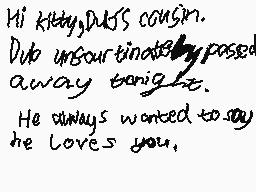 Hi Kitty, Dub's cousin.
Dub unfourtinately passed
away tonight.
He always wanted to say
he loves you.